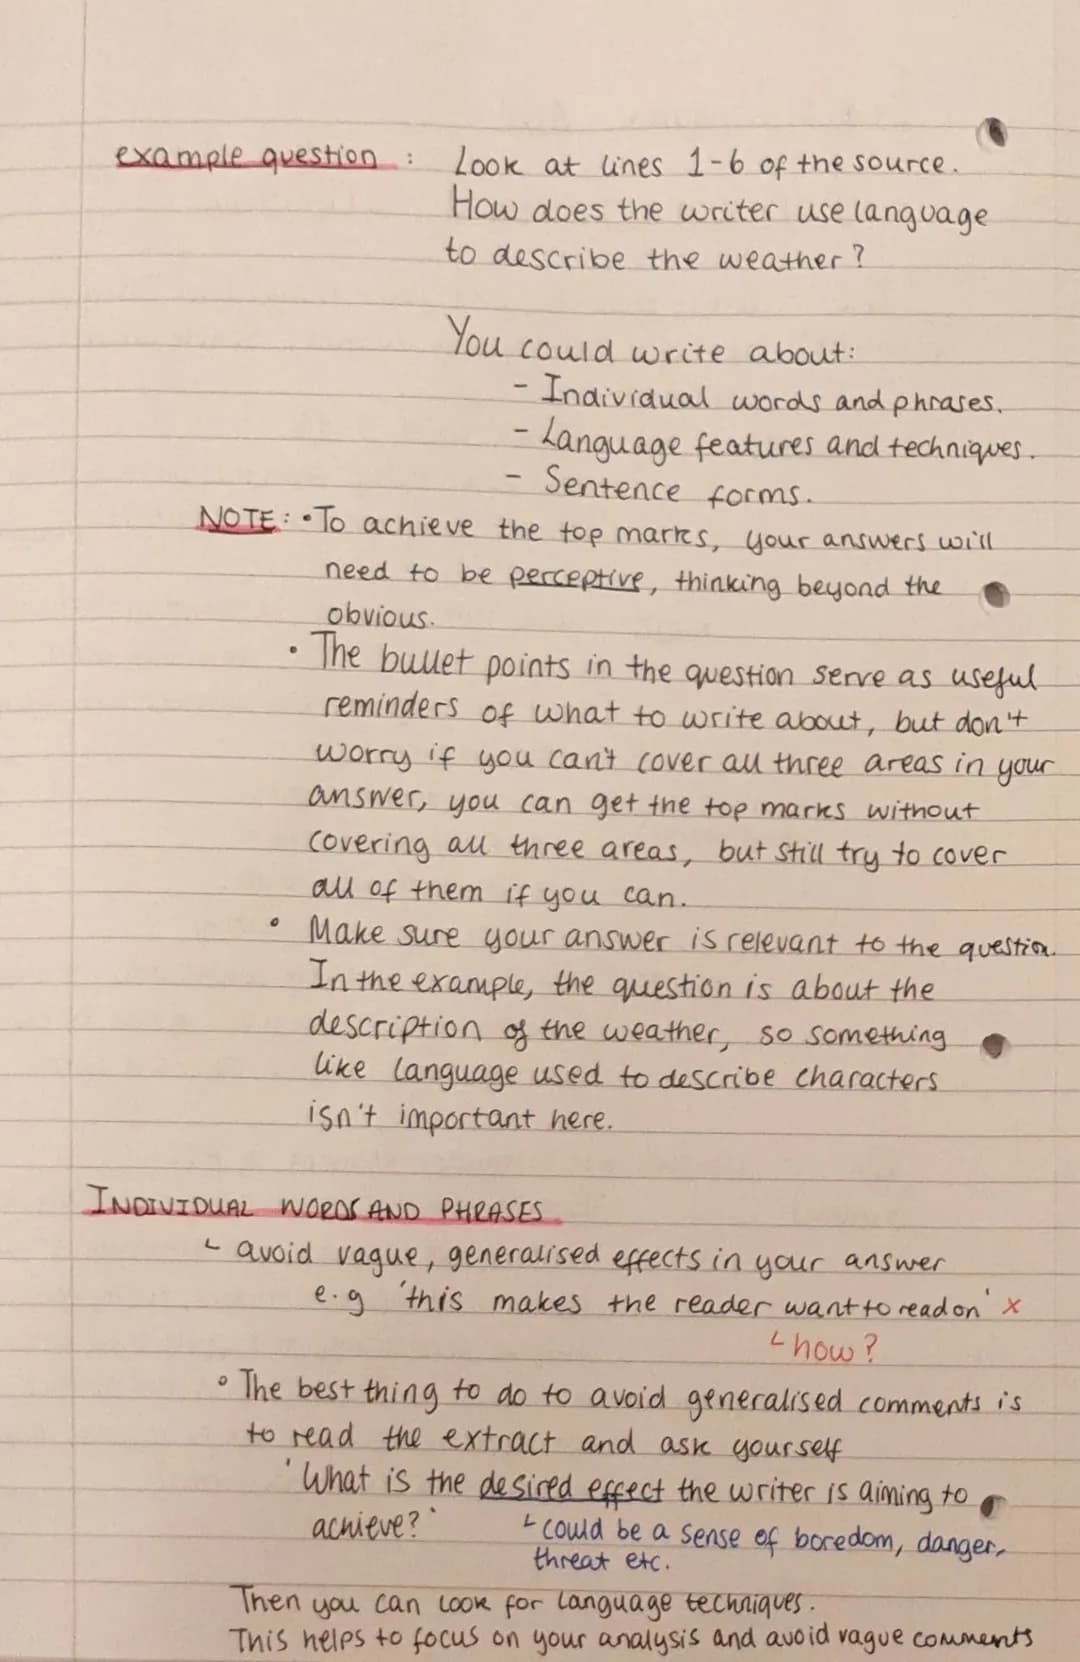 example question : Look at lines 1-6 of the source.
How does the writer use language
to describe the weather?
You could write about:
- Individual words and phrases.
- Language features and techniques.
- Sentence forms.
NOTE: • To achieve the top marks, your answers will
need to be perceptive, thinking beyond the
obvious.
• The bullet points in the question serve as useful
reminders of what to write about, but don't
worry if you can't cover all three areas in your
answer, you can get the top marks without
covering all three areas, but still try to cover
all of them if you can.
• Make sure your answer is relevant to the question.
In the example, the question is about the
description of the weather, so something
like language used to describe characters
isn't important here.
INDIVIDUAL WORDS AND PHRASES
└ avoid vague, generalised effects in your answer
e.g 'this makes the reader want to read on' x
└ how?
• The best thing to do to avoid generalised comments is
to read the extract and ask yourself
'What is the desired effect the writer is aiming to
achieve?' └ could be a sense of boredom, danger,
threat etc.
Then you can look for language techniques.
This helps to focus on your analysis and avoid vague comments